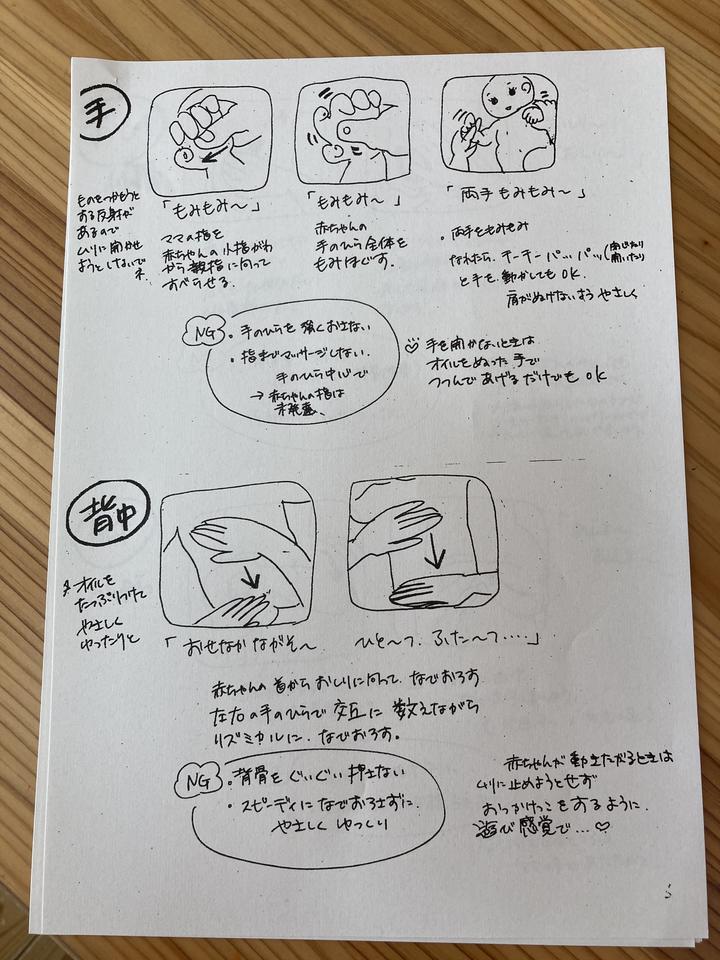 手
ものをつかもうと
する反射が
あるので
ムリに開かせ
ようとしないでネ
「もみもみ〜」
ママの指を
赤ちゃんの小指がわ
から親指に向って
すべらせる.
「もみもみ〜」
赤ちゃんの
手のひら全体を
もみほぐす.
「両手もみもみ〜」
・両手ともみもみ
なれたら、チーチーパッ、パッ(閉じたり開いたり
と手を.動かしてもOK.
肩がぬけないようやさしく
NG
・手のひらを強くおさない
・指までマッサージしない.
手のひら中心で
→赤ちゃんの指は
未発達、
♡手を開かないときは
オイルをぬった手で
つつんであげるだけでもOK
背中
オイルを
たっぷりつけて
やさしく
ゆったりと
「おせなかながそ〜 ひと〜つ.ふた〜つ‥‥」
赤ちゃんの首からおしりに向って.なでおろす
左右の手のひらで交互に数えながら
リズミカルに.なでおろす。
NG
・背骨をぐいぐい押さない
・スピーディになでおろさずに.
やさしくゆっくり
赤ちゃんが動きたがるときは
ムリに止めようとせず
おっかけっこをするように.
遊び感覚で…♡